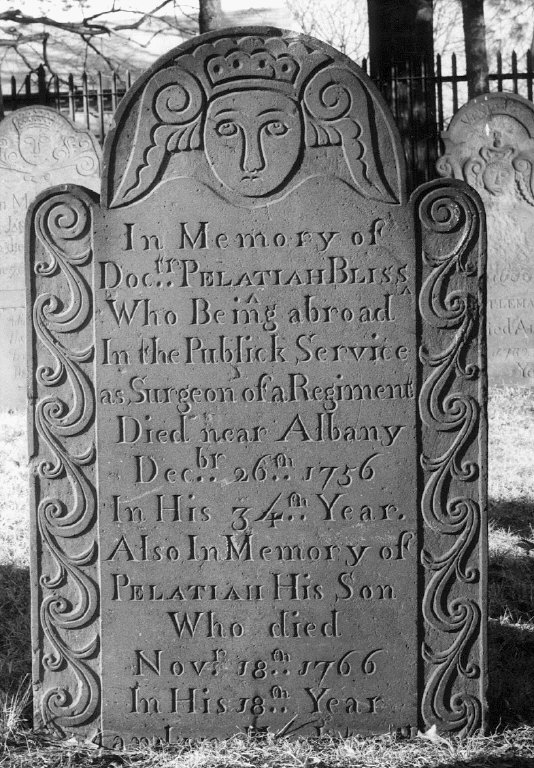 In Memory of
Doc.tr PELATIAH BLISS
Who Being abroad
In the Publick Service
as Surgeon of a Regiment
Died near Albany
Dec.br 26.th 1756
In His 34.th Year.
Also In Memory of
PELATIAH His Son
Who died
Nov.r 18.th 1766
In His 18.th Year